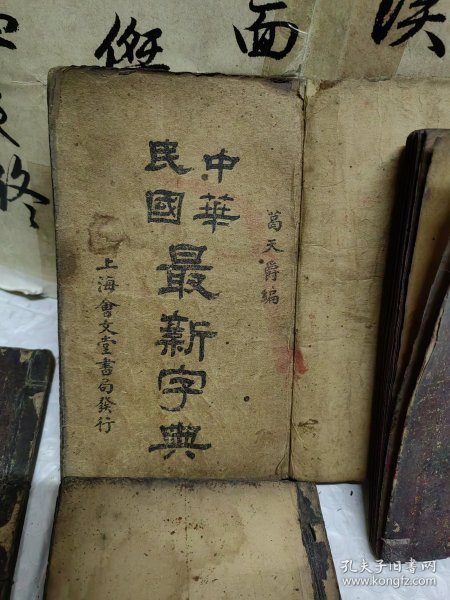 傑
面
葛天爵編
中華
民國
最新字典
上海會文堂書局發行
孔夫子旧书网
www.kongfz.com